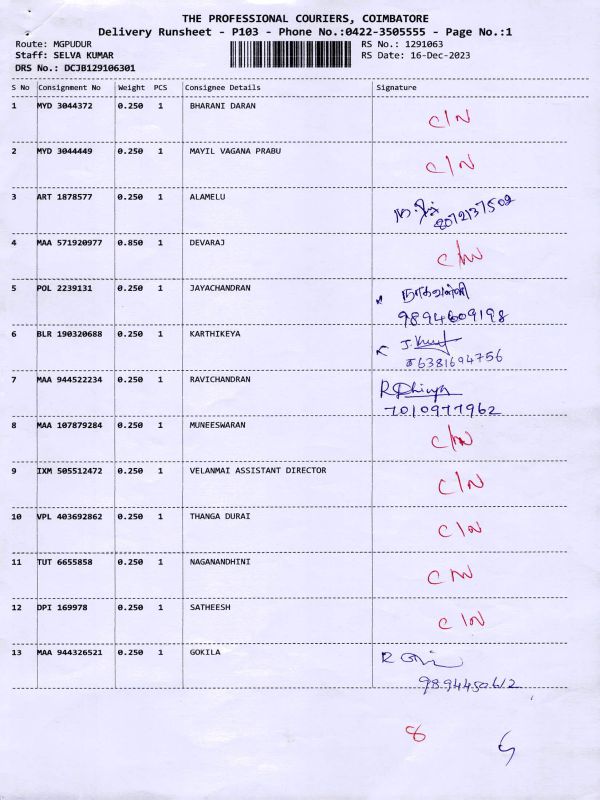 THE PROFESSIONAL COURIERS, COIMBATORE
Delivery Runsheet - P103 - Phone No.:0422-3505555 - Page No.:1
Route: MGPUDUR RS No.: 1291063
Staff: SELVA KUMAR RS Date: 16-Dec-2023
DRS No.: DCJB129106301
S No Consignment No Weight PCS Consignee Details Signature
1 MYD 3044372 0.250 1 BHARANI DARAN C/N
2 MYD 3044449 0.250 1 MAYIL VAGANA PRABU C/N
3 ART 1878577 0.250 1 ALAMELU
8072137502
4 MAA 571920977 0.850 1 DEVARAJ C/N
5 POL 2239131 0.250 1 JAYACHANDRAN நாகவள்ளி
9894609198
6 BLR 190320688 0.250 1 KARTHIKEYA
6381694756
7 MAA 944522234 0.250 1 RAVICHANDRAN R Dhivya
7010977962
8 MAA 107879284 0.250 1 MUNEESWARAN C/N
9 IXM 505512472 0.250 1 VELANMAI ASSISTANT DIRECTOR C/N
10 VPL 403692862 0.250 1 THANGA DURAI C/N
11 TUT 6655858 0.250 1 NAGANANDHINI C/N
12 DPI 169978 0.250 1 SATHEESH C/N
13 MAA 944326521 0.250 1 GOKILA
9894450612
8